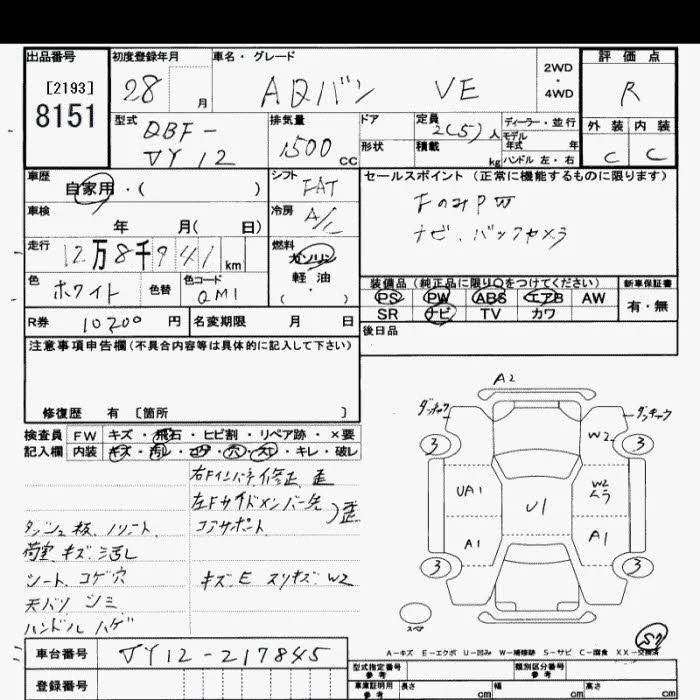 出品番号
[2193]
8151
初度登録年月
28 月
車名・グレード
ADバン VE
2WD
・
4WD
評価点
R
型式
DBF-
VY12
排気量
1500 CC
ドア
形状
定員
2(5)人
積載
kg
ディーラー・並行
モデル
年式 年
ハンドル 左・右
外装 内装
C C
車歴
自家用・( )
シフト
FAT
セールスポイント(正常に機能するものに限ります)
FのみPW
ナビ、バックカメラ
車検
年 月( 日)
冷房
A/C
走行
12万8千941 km
燃料
ガソリン
軽油
( ・ )
色
ホワイト
色替
色コード
QM1
装備品(純正品に限り○をつけてください)
PS PW ABS エアB AW
SR ナビ TV カワ
新車保証書
有・無
R券 10200 円
名変期限 月 日
後日品
注意事項申告欄(不具合内容等は具体的に記入して下さい)
修復歴 有 〔箇所 〕
検査員 FW キズ・飛石・ヒビ割・リペア跡・×要
記入欄 内装 キズ・汚レ・コゲ・穴・スレ・キレ・破レ
右Fインパネ修正、歪
左Fサイドメンバー先
コアサポート
)歪
荷室キズ汚し
シート、コゲ穴
キズ、E スリキズ、W2
天バリ シミ
ハンドル ハゲ
A2
3
3
W2
UA1
U1
W2
ムラ
A1
A1
3
3
スペア
S7
A-キズ E-エクボ U-凹み W-補修跡 S-サビ C-腐食 XX-交換済
車台番号 VY12-217845
登録番号
型式指定番号
参考
類別区分番号
参考
車庫証明用
参考
長さ cm 幅 cm 高さ cm